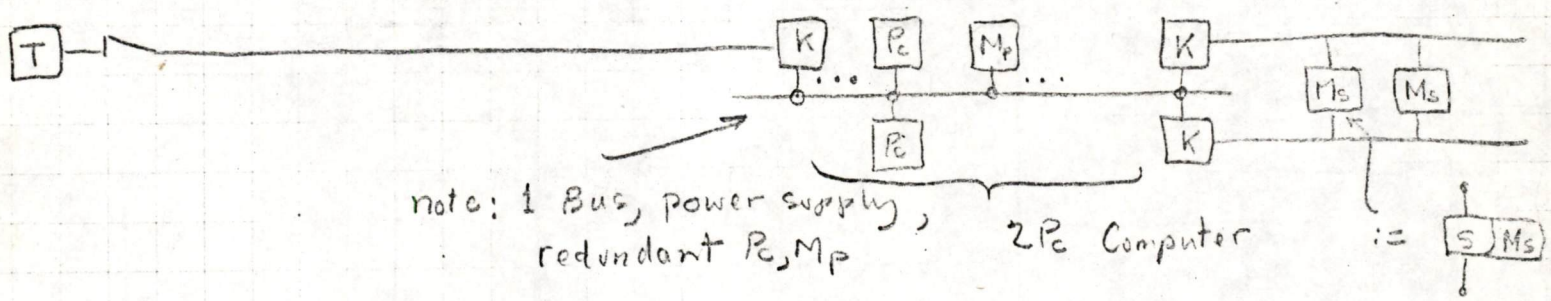 T K ... Pc Mp ... K
Ms Ms
Pc K
note: 1 Bus, power supply,
redundant Pc, Mp
2Pc Computer
:= S Ms